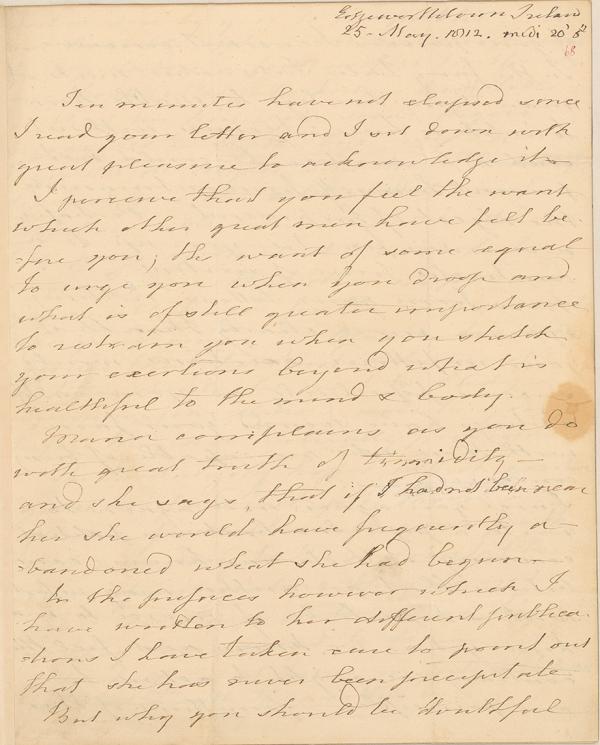 Edgeworthstown Ireland
25 - May. 1812. midi 20' 5"
68
Ten minutes have not elapsed since
I read your letter and I set down with
great pleasure to acknowledge it
I perceive that you feel the want
which other great men have felt be-
-fore you; the want of some equal
to urge you when you droop and
what is of still greater importance
to restrain you when you stretch
your exertions beyond what is
healthful to the mind & body.
Maria complains as you do
with great truth of timidity -
and she says, that if I had not been near
her she would have frequently a-
-bandoned what she had begun -
In the prefaces however which I
have written to her different publica
-tions I have taken care to point out
that she has never been precipitate
But why you should be doubtful